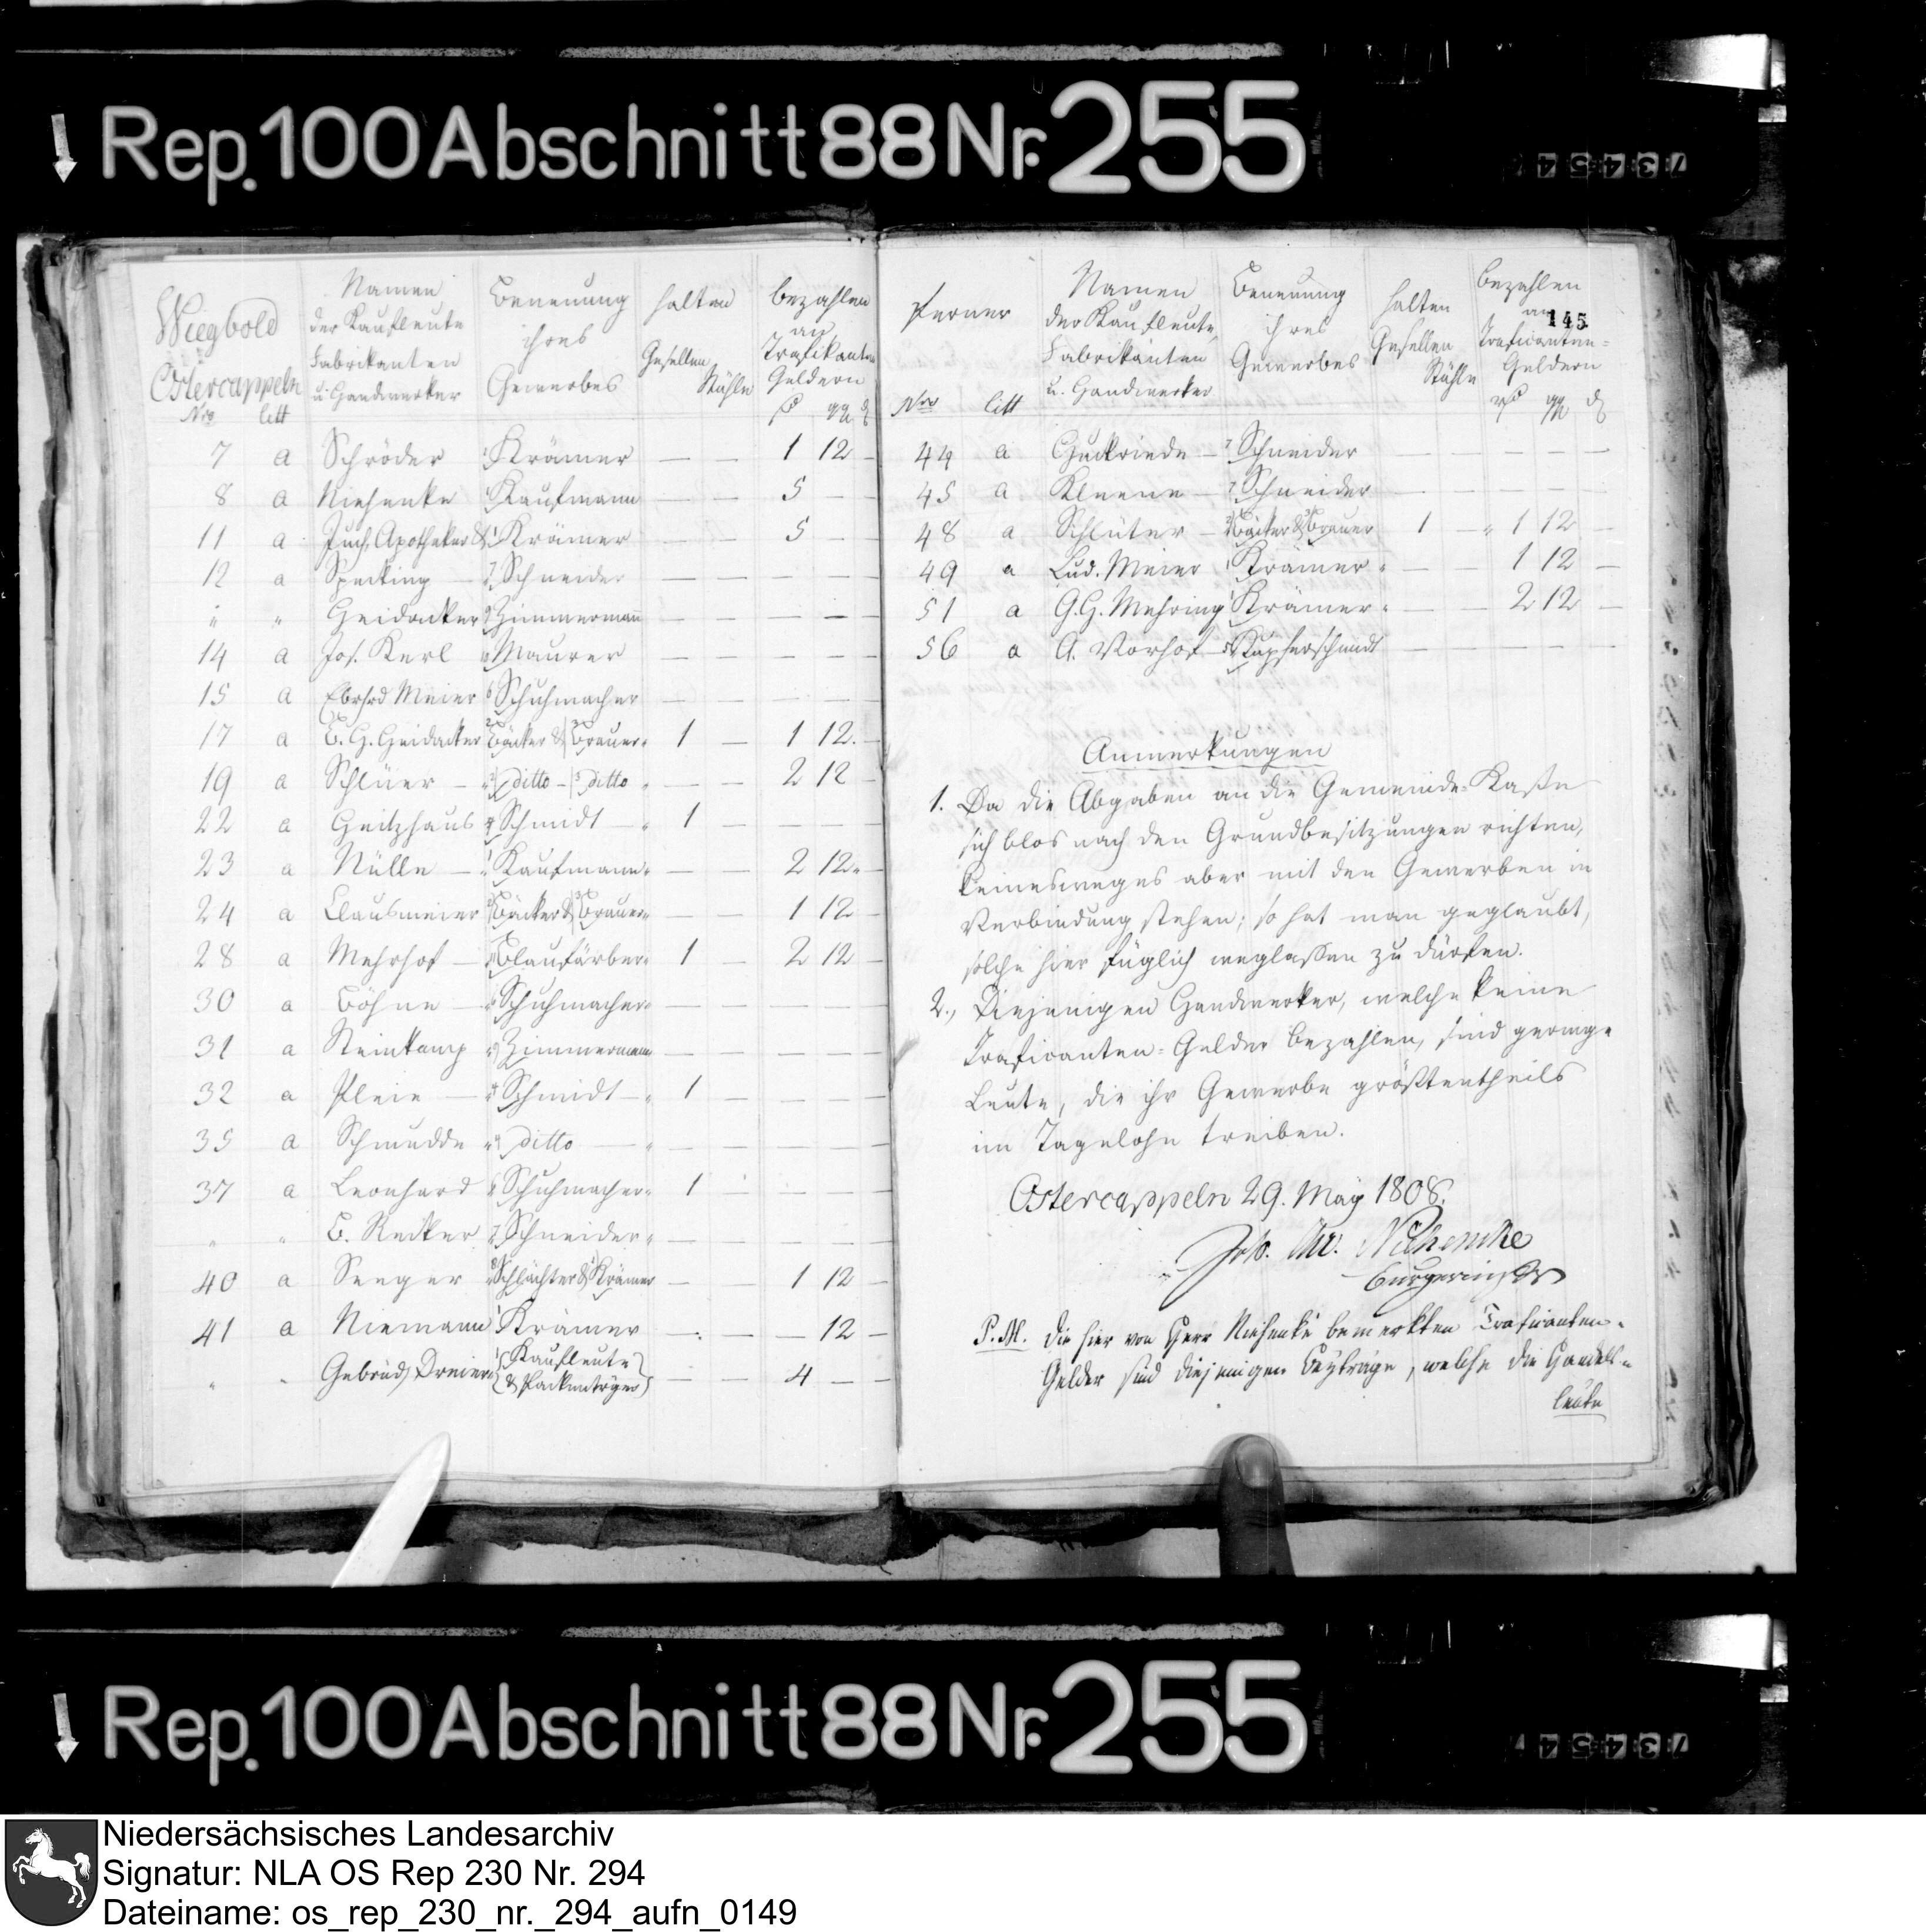 Rep. 100 Abschnitt 88 Nr. 255
Wiegbold
Ostercappeln
Nro litt
Namen
der Kaufleute
Fabrikanten
u. Handwerker
Benennung
ihres
Gewerbes
halten
Gesellen
Stühle
bezahlen
an
Trafikanten
Geldern
7 a Schröder 1 Krämer — — 1 12 —
8 a Niehenke 1 Kaufmann — — 5 —
11 a Apotheker & 1 Krämer — — 5 —
12 a Specking 7 Schneider — — — — —
" " Heidacker 9 Zimmermann — — — — —
14 a Jos. Kerl Maurer — — — — —
15 a Ebrhrd Meier 6 Schuhmacher — — — — —
17 a B. H. Heidacker 2 Bäcker & 3 Brauer 1 — 1 12 —
19 a Schlüer — 2 ditto — 3 ditto — — 2 12 —
22 a Geitzhaus 4 Schmidt 1 — — — —
23 a Nülle — 1 Kaufmann — — 2 12 —
24 a Clausmeier 2 Bäcker & 3 Brauer — — 1 12 —
28 a Mehrhof — Blaufärber 1 — 2 12 —
30 a Böhne — 6 Schuhmacher — — — — —
31 a Steinkamp 9 Zimmermann — — — — —
32 a Pleie — 4 Schmidt — 1 — — — —
35 a Schmudde 4 ditto — — — — —
37 a Leonhard 6 Schuhmacher 1 — — — —
" " B. Recker 7 Schneider — — — — —
40 a Seeger 8 Schlächter & 1 Krämer — — 1 12 —
41 a Niemann 1 Krämer — — — 12 —
" " Gebrüd. Dreier 1 Kaufleute
& Packenträger — — 4 — —
Ferner
Nro litt
Namen
der Kaufleute,
Fabrikanten
u. Handwerker
Benennung
ihres
Gewerbes
halten
Gesellen
Stühle
bezahlen
an
145
Traficanten-
Geldern
44 a — 7 Schneider — — — — —
45 a Kleene — 7 Schneider — — — — —
48 a Schlüter — 2 Bäcker & 3 Brauer 1 — 1 12 —
49 a Lud. Meier 1 Krämer — — 1 12 —
51 a G. H. Mehring 1 Krämer — — 2 12 —
56 a A. Vorhof 5 Kupferschmidt — — — — —
Anmerkungen
1. Da die Abgaben an die Gemeinde-Kaße
sich blos nach den Grundbesitzungen richten,
keinesweges aber mit den Gewerben in
Verbindung stehen; so hat man geglaubt,
solche hier füglich weglaßen zu dürfen.
2., Diejenigen Handwerker, welche keine
Traficanten-Gelder bezahlen, sind geringe
Leute, die ihr Gewerbe größtentheils
im Tagelohn treiben.
Ostercappeln 29. May 1808.
Jos. Niehencke
Burgermster
P. M. Die hier von Herr Niehenke bemerkten Traficanten-
Gelder sind diejenigen Beyträge, welche die Handels-
leute
Rep. 100 Abschnitt 88 Nr. 255
Niedersächsisches Landesarchiv
Signatur: NLA OS Rep 230 Nr. 294
Dateiname: os_rep_230_nr._294_aufn_0149